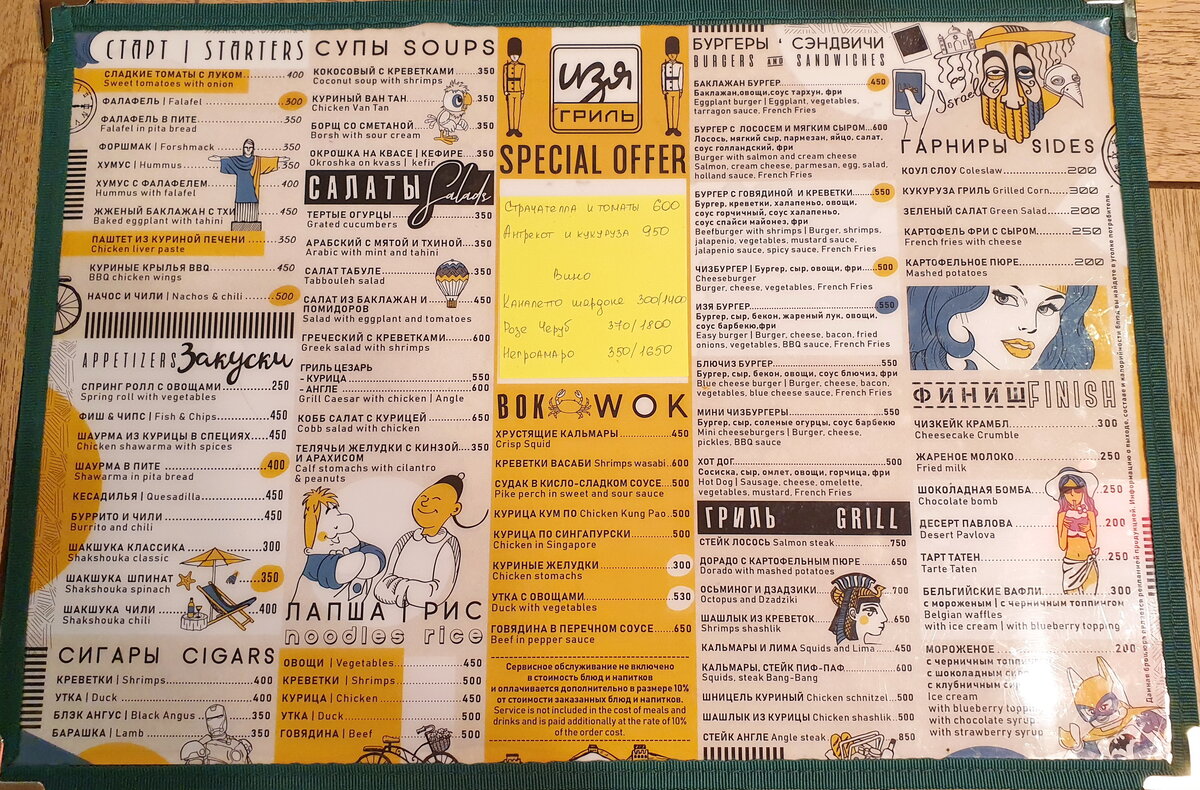 СТАРТ | STARTERS
СЛАДКИЕ ТОМАТЫ С ЛУКОМ 400
Sweet tomatoes with onion
ФАЛАФЕЛЬ | Falafel 300
ФАЛАФЕЛЬ В ПИТЕ 350
Falafel in pita bread
ФОРШМАК | Forshmack 350
ХУМУС | Hummus 350
ХУМУС С ФАЛАФЕЛЕМ 400
Hummus with falafel
ЖЖЕНЫЙ БАКЛАЖАН С ТХИ 450
Baked eggplant with tahini
ПАШТЕТ ИЗ КУРИНОЙ ПЕЧЕНИ 350
Chicken liver paste
КУРИНЫЕ КРЫЛЬЯ BBQ 450
BBQ chicken wings
НАЧОС И ЧИЛИ | Nachos & chili 500
APPETIZERS Закуски
СПРИНГ РОЛЛ С ОВОЩАМИ 250
Spring roll with vegetables
ФИШ & ЧИПС | Fish & Chips 450
ШАУРМА ИЗ КУРИЦЫ В СПЕЦИЯХ 450
Chicken shawarma with spices
ШАУРМА В ПИТЕ 400
Shawarma in pita bread
КЕСАДИЛЬЯ | Quesadilla 450
БУРРИТО И ЧИЛИ 450
Burrito and chili
ШАКШУКА КЛАССИКА 300
Shakshouka classic
ШАКШУКА ШПИНАТ 350
Shakshouka spinach
ШАКШУКА ЧИЛИ 400
Shakshouka chili
СИГАРЫ CIGARS
КРЕВЕТКИ | Shrimps 400
УТКА | Duck 400
БЛЭК АНГУС | Black Angus 350
БАРАШКА | Lamb 350
СУПЫ SOUPS
КОКОСОВЫЙ С КРЕВЕТКАМИ 350
Coconut soup with shrimps
КУРИНЫЙ ВАН ТАН 350
Chicken Van Tan
БОРЩ СО СМЕТАНОЙ 350
Borsh with sour cream
ОКРОШКА НА КВАСЕ | КЕФИРЕ 350
Okroshka on kvass | kefir
САЛАТЫ Salads
ТЕРТЫЕ ОГУРЦЫ 350
Grated cucumbers
АРАБСКИЙ С МЯТОЙ И ТХИНОЙ 350
Arabic with mint and tahini
САЛАТ ТАБУЛЕ 350
Tabbouleh salad
САЛАТ ИЗ БАКЛАЖАН И 450
ПОМИДОРОВ
Salad with eggplant and tomatoes
ГРЕЧЕСКИЙ С КРЕВЕТКАМИ 600
Greek salad with shrimps
ГРИЛЬ ЦЕЗАРЬ
- КУРИЦА 550
- АНГЛЕ 600
Grill Caesar with chicken | Angle
КОББ САЛАТ С КУРИЦЕЙ 650
Cobb salad with chicken
ТЕЛЯЧЬИ ЖЕЛУДКИ С КИНЗОЙ 350
И АРАХИСОМ
Calf stomachs with cilantro
& peanuts
ЛАПША | РИС
noodles rice
ОВОЩИ | Vegetables 450
КРЕВЕТКИ | Shrimps 500
КУРИЦА | Chicken 450
УТКА | Duck 500
ГОВЯДИНА | Beef 500
изя
ГРИЛЬ
SPECIAL OFFER
Страчателла и томаты 600
Антрекот и кукуруза 950
Вино
Каналетто шардоне 300/1400
Розе Черуб 370/1800
Негроамаро 350/1650
ВОК WOK
ХРУСТЯЩИЕ КАЛЬМАРЫ 450
Crisp Squid
КРЕВЕТКИ ВАСАБИ Shrimps wasabi 600
СУДАК В КИСЛО-СЛАДКОМ СОУСЕ 500
Pike perch in sweet and sour sauce
КУРИЦА КУМ ПО Chicken Kung Pao 500
КУРИЦА ПО СИНГАПУРСКИ 500
Chicken in Singapore
КУРИНЫЕ ЖЕЛУДКИ 300
Chicken stomachs
УТКА С ОВОЩАМИ 530
Duck with vegetables
ГОВЯДИНА В ПЕРЕЧНОМ СОУСЕ 650
Beef in pepper sauce
Сервисное обслуживание не включено
в стоимость блюд и напитков
и оплачивается дополнительно в размере 10%
от стоимости заказанных блюд и напитков.
Service is not included in the cost of meals and
drinks and is paid additionally at the rate of 10%
of the order cost.
БУРГЕРЫ СЭНДВИЧИ
BURGERS AND SANDWICHES
БАКЛАЖАН БУРГЕР 450
Баклажан, овощи, соус тархун, фри
Eggplant burger | Eggplant, vegetables,
tarragon sauce, French Fries
БУРГЕР С ЛОСОСЕМ И МЯГКИМ СЫРОМ 600
Лосось, мягкий сыр, пармезан, яйцо, салат,
соус голландский, фри
Burger with salmon and cream cheese
Salmon, cream cheese, parmesan, egg, salad,
holland sauce, French Fries
БУРГЕР С ГОВЯДИНОЙ И КРЕВЕТКИ 550
Бургер, креветки, халапеньо, овощи,
соус горчичный, соус халапеньо,
соус спайси майонез, фри
Beefburger with shrimps | Burger, shrimps,
jalapenio, vegetables, mustard sauce,
jalapenio sauce, spicy sauce, French Fries
ЧИЗБУРГЕР | Бургер, сыр, овощи, фри 500
Cheeseburger
Burger, cheese, vegetables, French Fries
ИЗЯ БУРГЕР 550
Бургер, сыр, бекон, жареный лук, овощи,
соус барбекю, фри
Easy burger | Burger, cheese, bacon, fried
onions, vegetables, BBQ sauce, French Fries
БЛЮЧИЗ БУРГЕР 550
Бургер, сыр, бекон, овощи, соус блючиз, фри
Blue cheese burger | Burger, cheese, bacon,
vegetables, blue cheese sauce, French Fries
МИНИ ЧИЗБУРГЕРЫ 550
Бургер, сыр, соленые огурцы, соус барбекю
Mini cheeseburgers | Burger, cheese,
pickles, BBQ sauce
ХОТ ДОГ 500
Сосиска, сыр, омлет, овощи, горчица, фри
Hot Dog | Sausage, cheese, omelette,
vegetables, mustard, French Fries
ГРИЛЬ GRILL
СТЕЙК ЛОСОСЬ Salmon steak 750
ДОРАДО С КАРТОФЕЛЬНЫМ ПЮРЕ 650
Dorado with mashed potatoes
ОСЬМИНОГ И ДЗАДЗИКИ 700
Octopus and Dzadziki
ШАШЛЫК ИЗ КРЕВЕТОК 650
Shrimps shashlik
КАЛЬМАРЫ И ЛИМА Squids and Lima 450
КАЛЬМАРЫ, СТЕЙК ПИФ-ПАФ 600
Squids, steak Bang-Bang
ШНИЦЕЛЬ КУРИНЫЙ Chicken schnitzel 500
ШАШЛЫК ИЗ КУРИЦЫ Chicken shashlik 500
СТЕЙК АНГЛЕ Angle steak 850
Israel
ГАРНИРЫ SIDES
КОУЛ СЛОУ Coleslaw 200
КУКУРУЗА ГРИЛЬ Grilled Corn 300
ЗЕЛЕНЫЙ САЛАТ Green Salad 200
КАРТОФЕЛЬ ФРИ С СЫРОМ 250
French fries with cheese
КАРТОФЕЛЬНОЕ ПЮРЕ 200
Mashed potatoes
ФИНИШ FINISH
ЧИЗКЕЙК КРАМБЛ 300
Cheesecake Crumble
ЖАРЕНОЕ МОЛОКО 250
Fried milk
ШОКОЛАДНАЯ БОМБА 250
Chocolate bomb
ДЕСЕРТ ПАВЛОВА 200
Desert Pavlova
ТАРТ ТАТЕН 250
Tarte Taten
БЕЛЬГИЙСКИЕ ВАФЛИ 300
с мороженым | с черничным топпингом
Belgian waffles
with ice cream | with blueberry topping
МОРОЖЕНОЕ 200
с черничным топпи
с шоколадным сир
с клубничным си
Ice cream
with blueberry topp
with chocolate syrup
with strawberry syrup
Данная брошюра является рекламной продукцией. Информацию о выходе, составе и калорийности блюд вы найдете в уголке потребителя